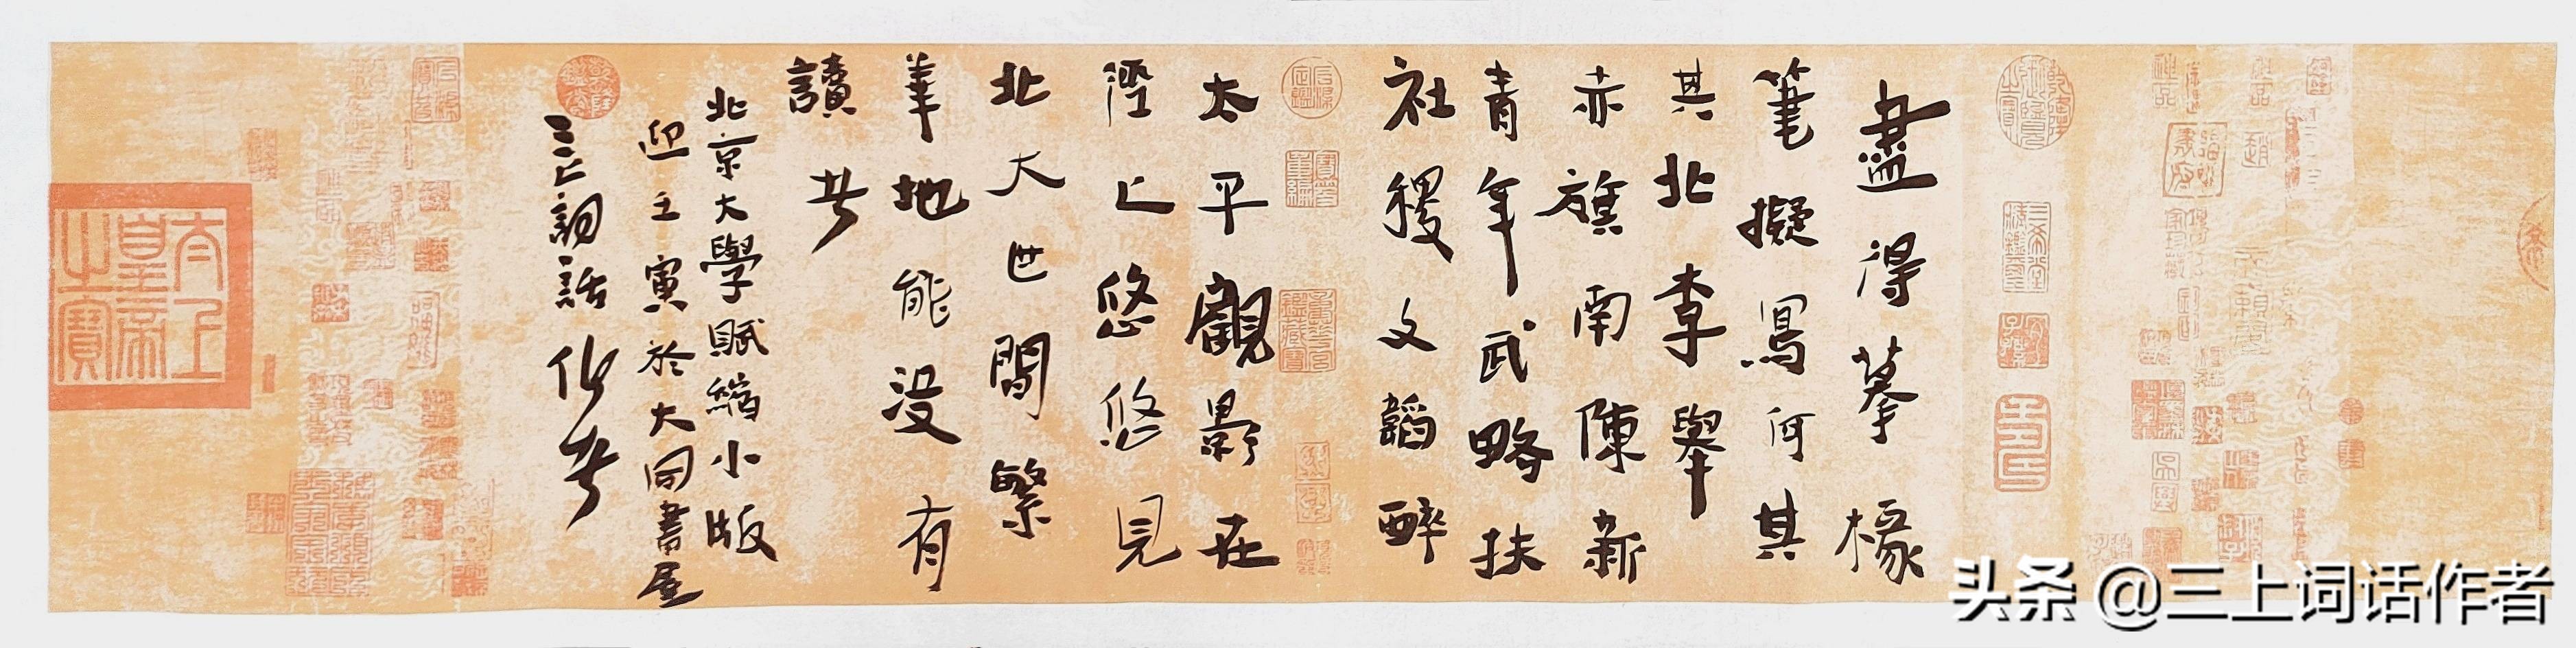 盡得摹椽
筆擬寫何其
其北李舉
赤旗南陳新
青年武略扶
社稷文韜醉
太平觀影在
涇上悠悠見
北大世間繁
華地能没有
讀者
北京大學賦縮小版
迎壬寅於大同書屋
三上詞話作者
太上皇帝之寶
头条 @三上词话作者